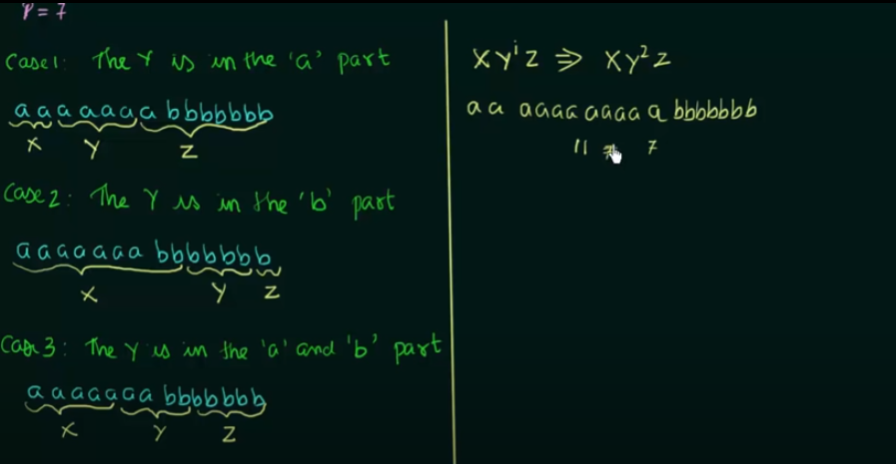 P = 7
Case1: The Y is in the 'a' part
aaaaaaabbbbbbb
X Y Z
Case 2: The Y is in the 'b' part
aaaaaaabbbbbbb
X Y Z
Case 3: The Y is in the 'a' and 'b' part
aaaaaaabbbbbbb
X Y Z
xyⁱz ⇒ xy²z
aa aaaa aaaa a bbbbbbb
11 ≠ 7